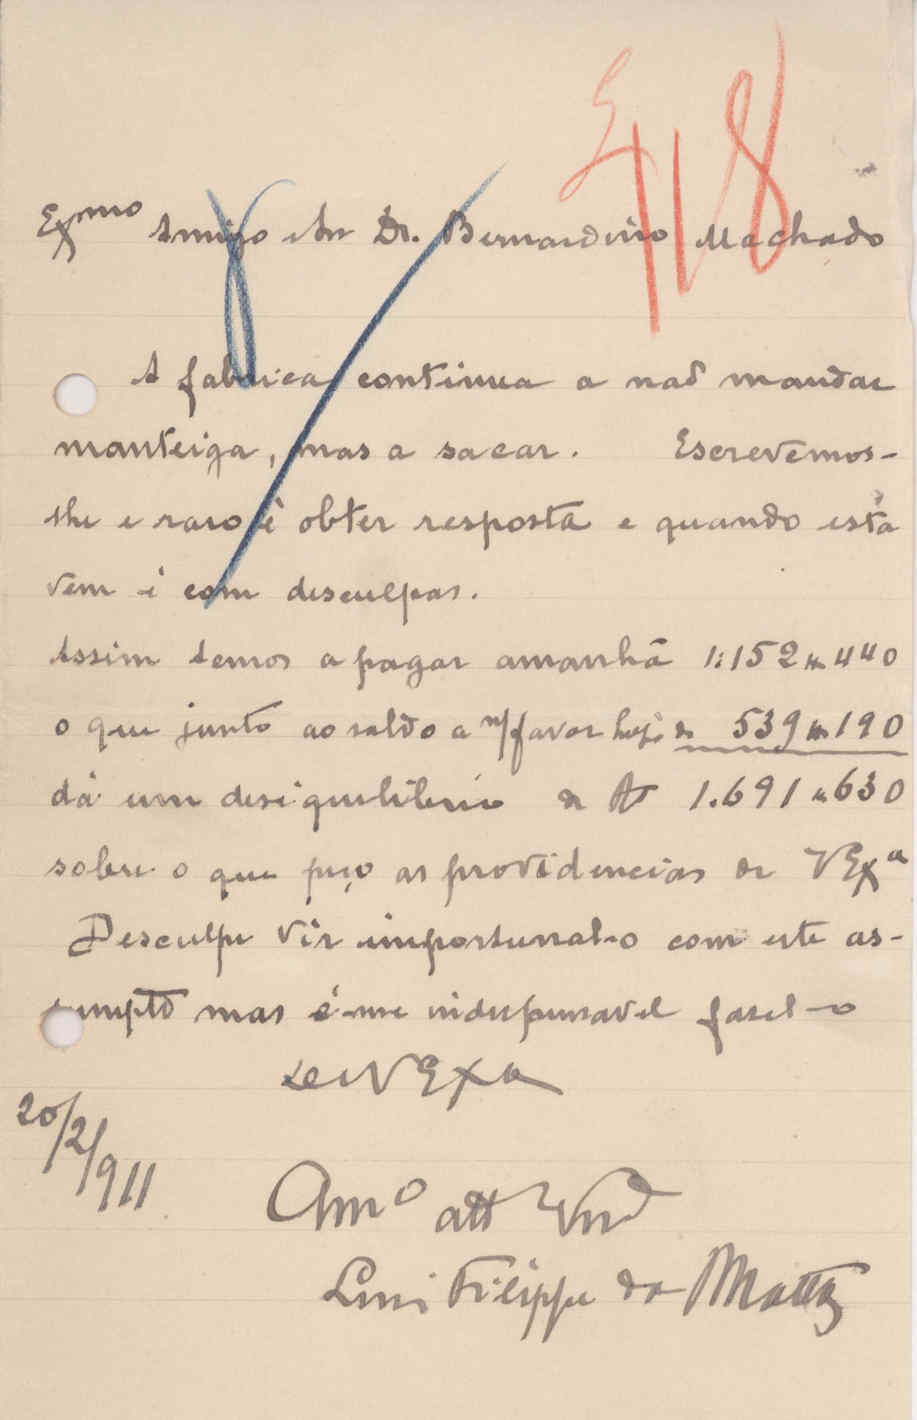 E 118
Exmo Amigo Snr Dr. Bernardino Machado
A fabrica continua a não mandar
manteiga, mas a sacar. Escrevemos-
lhe e raro é obter resposta e quando esta
vem é com desculpas.
Assim temos a pagar amanhã 1:152$440
o que junto ao saldo a n/favor hoje de 539$190
dá um desiquilibrio de 1.691$630
sobre o que peço as providencias de VExa
Desculpe vir importunal-o com este as-
sumpto mas é-me indispensavel fasel-o
De VExa
20/2/911
Amo att Vnd
Luis Filippe da Matta